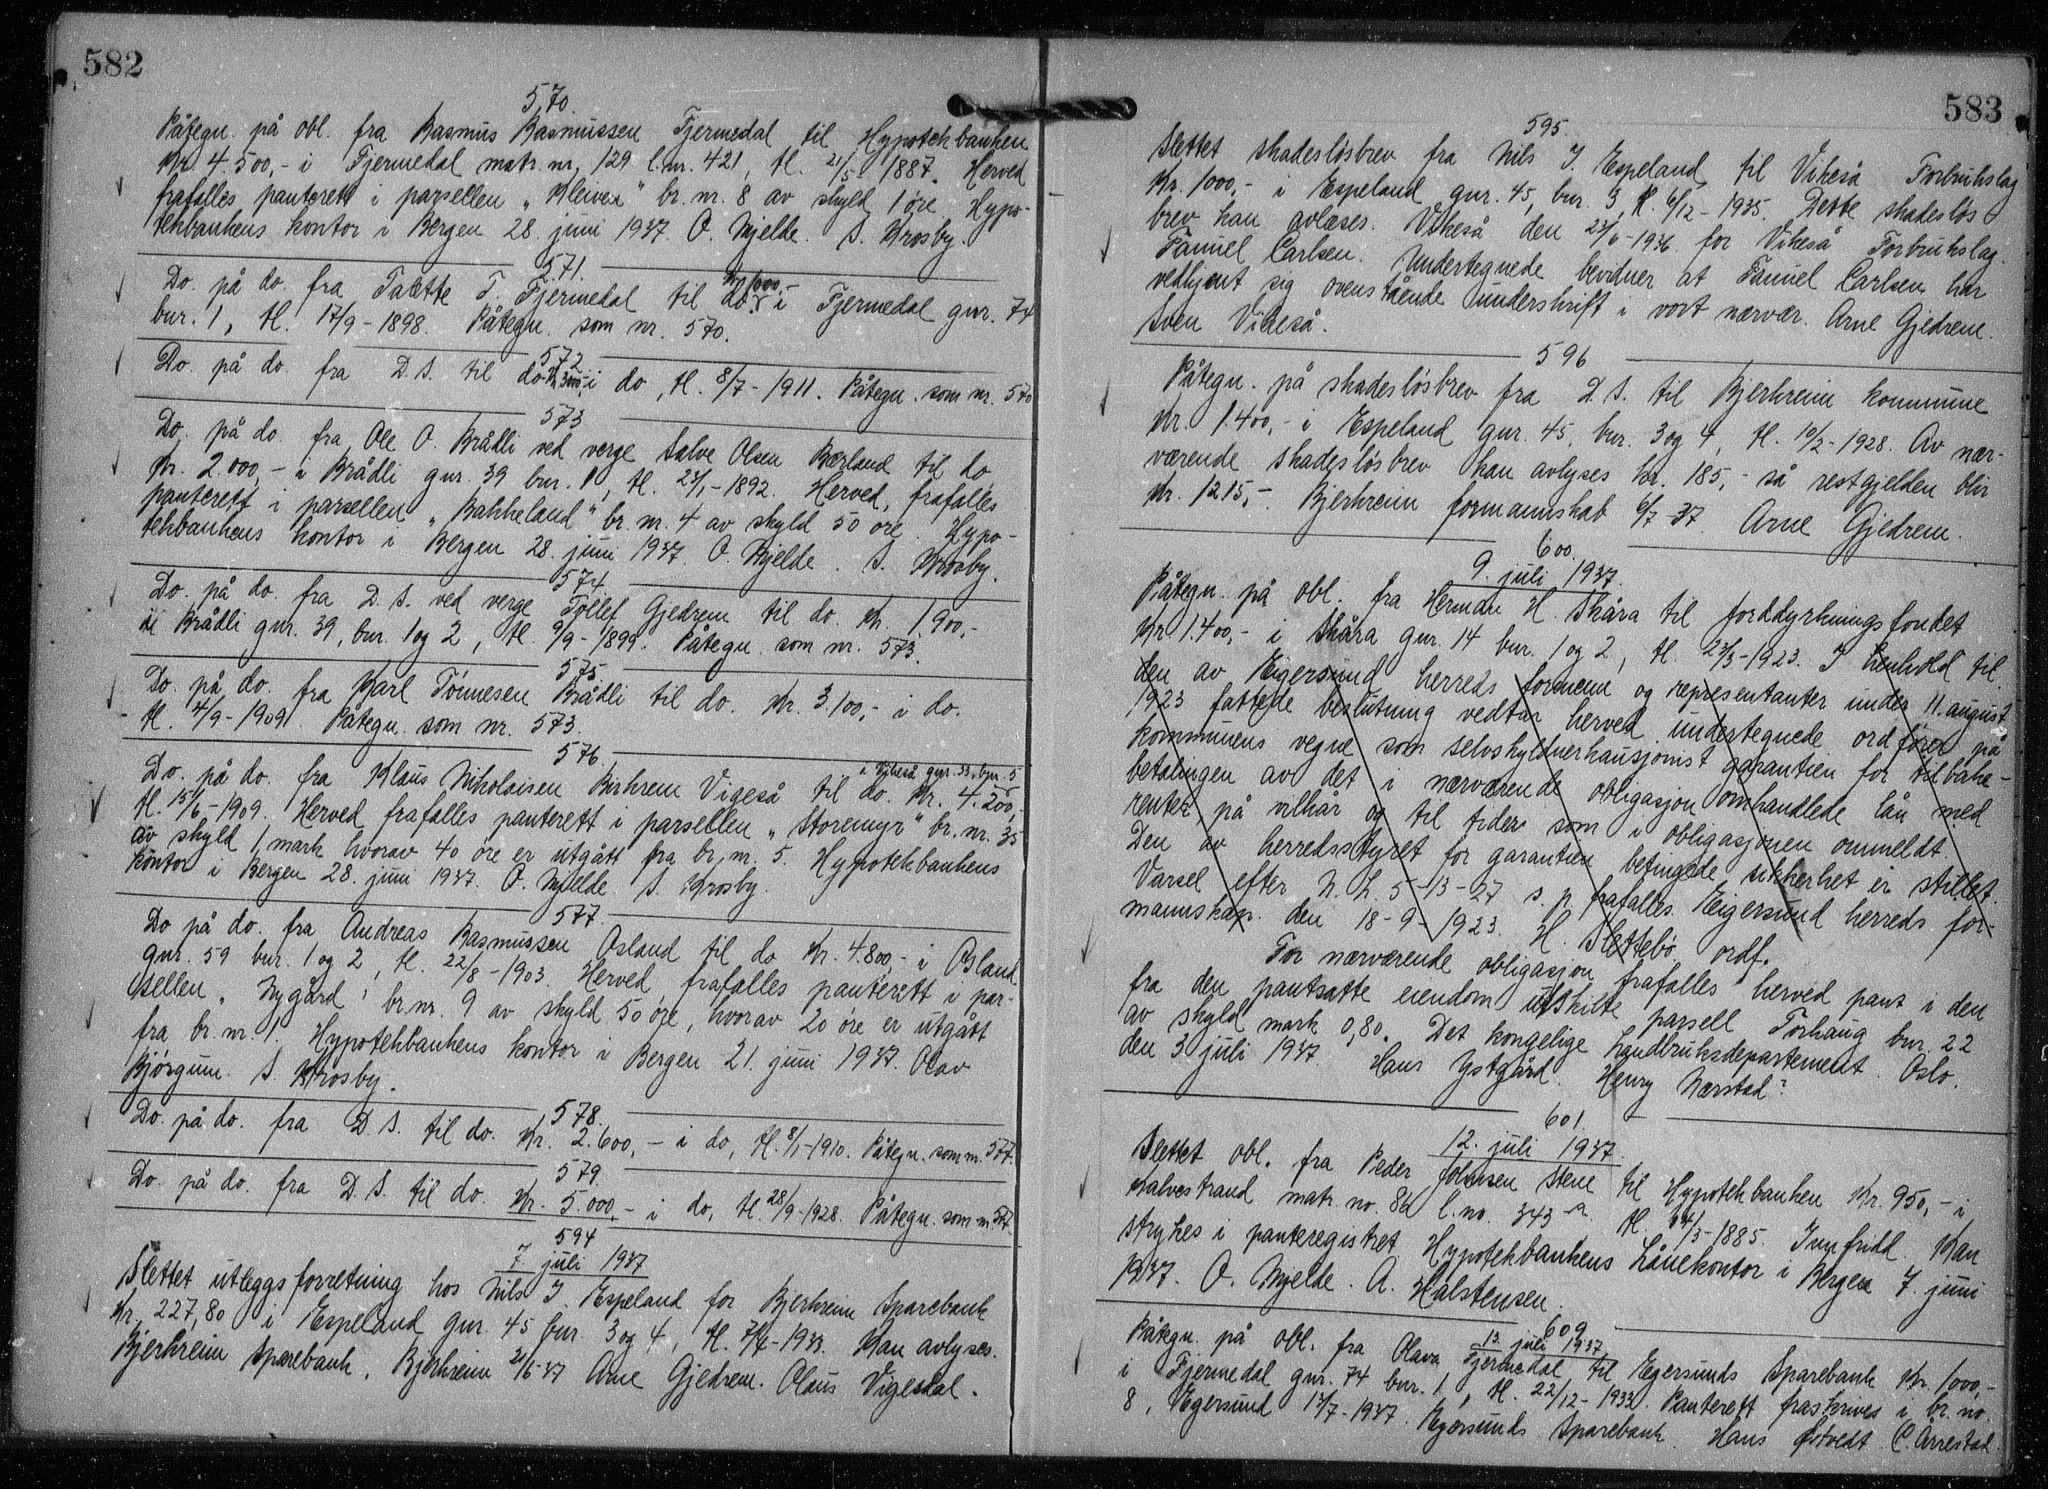 582
570.
Påtegn. på obl. fra Rasmus Rasmussen Fjermedal til Hypotekbanken
kr. 4.500,- i Fjermedal matr. nr. 129 l.nr. 421, tl. 21/5-1887. Herved
frafalles panterett i parsellen „Kleiven" br. nr. 8 av skyld 1 øre. Hypo-
tekbankens kontor i Bergen 28. juni 1937. O. Mjelde. S. Krosby.
571.
Do. på do. fra Talette T. Fjermedal til do. kr. 1000,- i Fjermedal gnr. 74
bnr. 1, tl. 17/9-1898. Påtegn. som nr. 570.
572
Do. på do. fra D.S. til do. kr. 3000,- i do, tl. 8/7-1911. Påtegn. som nr. 570
573
Do. på do. fra Ole O. Brådli ved verge Salve Olsen Bærland til do
kr. 2.000,- i Brådli gnr. 39 bnr. 1, tl. 23/1-1892. Herved, frafalles
panterett i parsellen „Bakkeland" br. nr. 4 av skyld 50 øre. Hypo-
tekbankens kontor i Bergen 28. juni 1937. O. Mjelde. S. Krosby.
574
Do. på do. fra D.S. ved verge Tollef Gjedrem til do. kr. 1.900,-
i Brådli gnr. 39, bnr. 1 og 2, tl. 9/9-1899. Påtegn. som nr. 573.
575
Do. på do. fra Karl Tønnesen Brådli til do. kr. 3.100,- i do.
tl. 4/9-1909. Påtegn. som nr. 573.
576.
Do. på do. fra Klaus Nikolaisen Birkrem Vigeså til do. i Vikeså gnr. 33, bnr. 5 kr. 4.200,-
tl. 15/6-1909. Herved frafalles panterett i parsellen „Storemyr" br. nr. 35
av skyld 1, mark hvorav 40 øre er utgått fra br. nr. 5. Hypotekbankens
kontor i Bergen 28. juni 1937. O. Mjelde. S. Krosby.
577.
Do på do. fra Andreas Rasmussen Osland til do kr. 4.800,- i Osland
gnr. 59 bnr. 1 og 2, tl. 22/8-1903. Herved frafalles panterett i par-
sellen „Nygård" br. nr. 9 av skyld 50 øre, hvorav 20 øre er utgått
fra br. nr. 1. Hypotekbankens kontor i Bergen 21. juni 1937. Olav
Bjørgum. S. Krosby.
578.
Do. på do. fra D.S. til do. kr. 2.600,- i do, tl. 8/1-1910. Påtegn. som nr. 577.
579.
Do. på do. fra D.S. til do. kr. 5.000,- i do, tl. 28/9-1928. Påtegn. som nr. 577.
594
7 juli 1937
Slettet utleggsforretning hos Nils J. Espeland for Bjerkreim Sparebank
kr. 227,80 i Espeland gnr. 45 bnr. 3 og 4, tl. 7/4-1933. Kan avlyses.
Bjerkreim Sparebank, Bjerkreim 21/6-37 Arne Gjedrem. Olaus Vigesdal.
583
595.
Slettet skadesløsbrev fra Nils J. Espeland til Vikeså Forbrukslag
kr. 1000,- i Espeland gnr. 45, bnr. 3, tl. 6/12-1935. Dette skadesløs
brev kan avlæses. Vikeså den 23/6-1936. for Vikeså Forbrukslag.
Fanuel Carlsen. Undertegnede bevidner at Fanuel Carlsen har
vedkjent sig ovenstående underskrift i vort nærvær. Arne Gjedrem.
Sven Vikeså.
596
Påtegn. på skadesløsbrev fra D.S. til Bjerkreim kommune
kr. 1.400,- i Espeland gnr. 45, bnr. 3 og 4, tl. 10/2-1928. Av nær-
værende skadesløsbrev kan avlyses kr. 185,- så restgjelden blir
kr. 1215,-. Bjerkreim formannskab 6/7-37 Arne Gjedrem.
600.
9. juli 1937.
Påtegn. på obl. fra Herman H. Skåra til jorddyrkningsfondet
kr. 1.400,- i Skåra gnr. 14 bnr. 1 og 2, tl. 23/3-1923. I henhold til
den av Eigersund herreds formenn og representanter under 11. august
1923 fattede beslutning vedtar herved undertegnede ordfører på
kommunens vegne som selvskyldnerkausjonist garantien for tilbake-
betalingen av det i nærværende obligasjon omhandlede lån med
renter på vilkår og til tider som i obligasjonen ommeldt.
Den av herredsstyret for garantien betingede sikkerhet er stillet.
Varsel efter N. L. 5-13-27 s. p. frafalles. Eigersund herreds for-
mannskap. den 18-9-1923. H. Slettebø ordf.
For nærværende obligasjon frafalles herved pant i den
fra den pantsatte eiendom utskilte parsell Torhaug bnr. 22
av skyld mark 0,80. Det kongelige Landbruksdepartement. Oslo.
den 3 juli 1937 Hans Ystgård. Henry Nærstad?
601.
12. juli 1937.
Slettet obl. fra Peder Johnsen Stene til Hypotekbanken kr. 950,- i
Kalvestrand matr. no. 86 l.no. 343 a. tl. 14/3-1885 Innfridd kan
strykes i panteregistret. Hypotekbankens Lånekontor i Bergen 7. juni
1937. O. Mjelde. A. Halstensen.
609
13. juli 1937
Påtegn. på obl. fra Olava Fjermedal til Egersunds Sparebank kr. 1000,-
i Fjermedal gnr. 74 bnr. 1, tl. 22/12-1933. Panterett fraskrives i br. no.
8, Egersund 13/7-1937. Egersunds Sparebank. Hans Østvedt C. Årrestad.